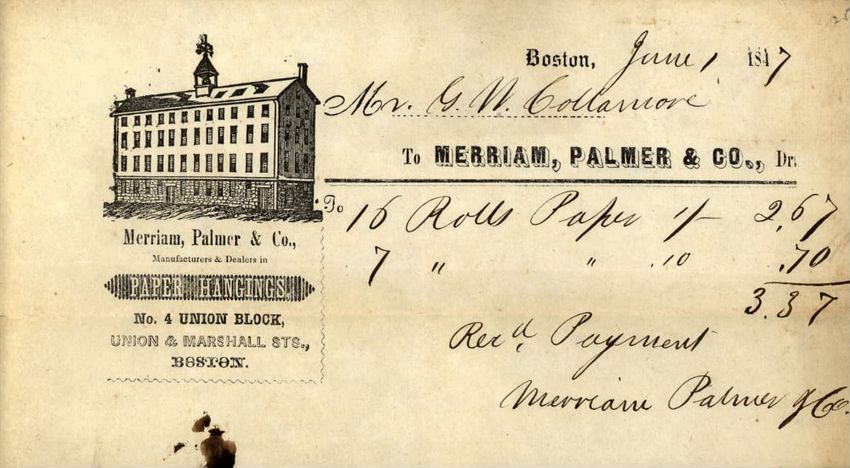 Boston, June 1 1847
Mr. G. W. Collamore
To MERRIAM, PALMER & CO., Dr.
To 16 Rolls Paper 1/- 2,67
7 " " .10 .70
3.37
Rec'd, Payment
Merriam Palmer & Co.
Merriam, Palmer & Co.,
Manufacturers & Dealers in
PAPER HANGINGS,
No. 4 UNION BLOCK,
UNION & MARSHALL STS.,
BOSTON.